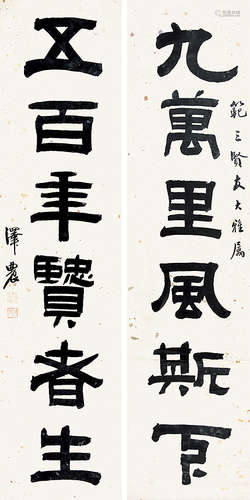 範三賢友大雅屬
九萬里風斯下
五百年賢者生
澤農